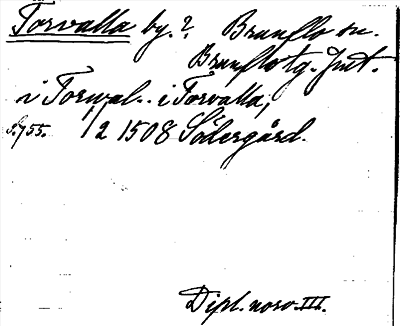 Torvalla by.? Brunflo sn.
Brunflo tg. Jmt.
i Torwal.. i Torvalla,
S. 755. 1/2 1508 Södergård.
Dipl. norv. III.